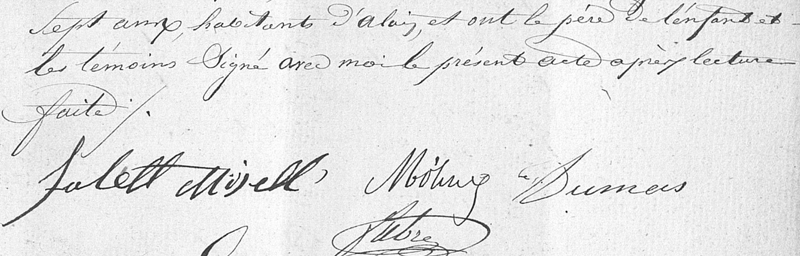 sept ans, habitants d'alais, et ont le père de l'enfant et
les témoins Signé avec moi le présent acte après lecture
faite ./.
Dumas
fabre